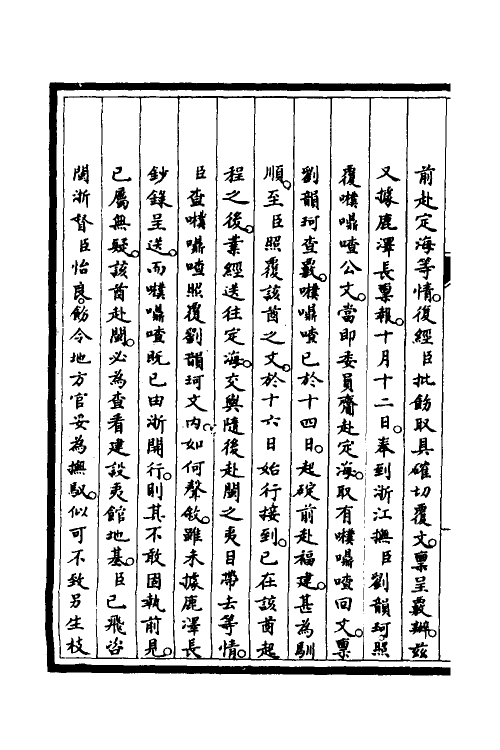 前赴定海等情。復經臣批飭取具確切覆文。稟呈覈辦。茲
又據鹿澤長稟報。十月十二日。奉到浙江撫臣劉韻珂照
覆㗱𠾴喳公文。當即委員齎赴定海。取有㗱𠾴喳回文。稟
劉韻珂查覈。㗱𠾴喳已於十四日。起碇前赴福建。甚為馴
順。至臣照覆該酋之文。於十六日始行接到。已在該酋起
程之後。業經送往定海。交與隨後赴閩之夷目帶去等情。
臣查㗱𠾴喳照覆劉韻珂文內。如何聲敘。雖未據鹿澤長
鈔錄呈送。而㗱𠾴喳既已由浙開行。則其不敢固執前見。
已屬無疑。該酋赴閩。必為查看建設夷館地基。臣已飛咨
閩浙督臣怡良。飭令地方官妥為撫馭。似可不致另生枝